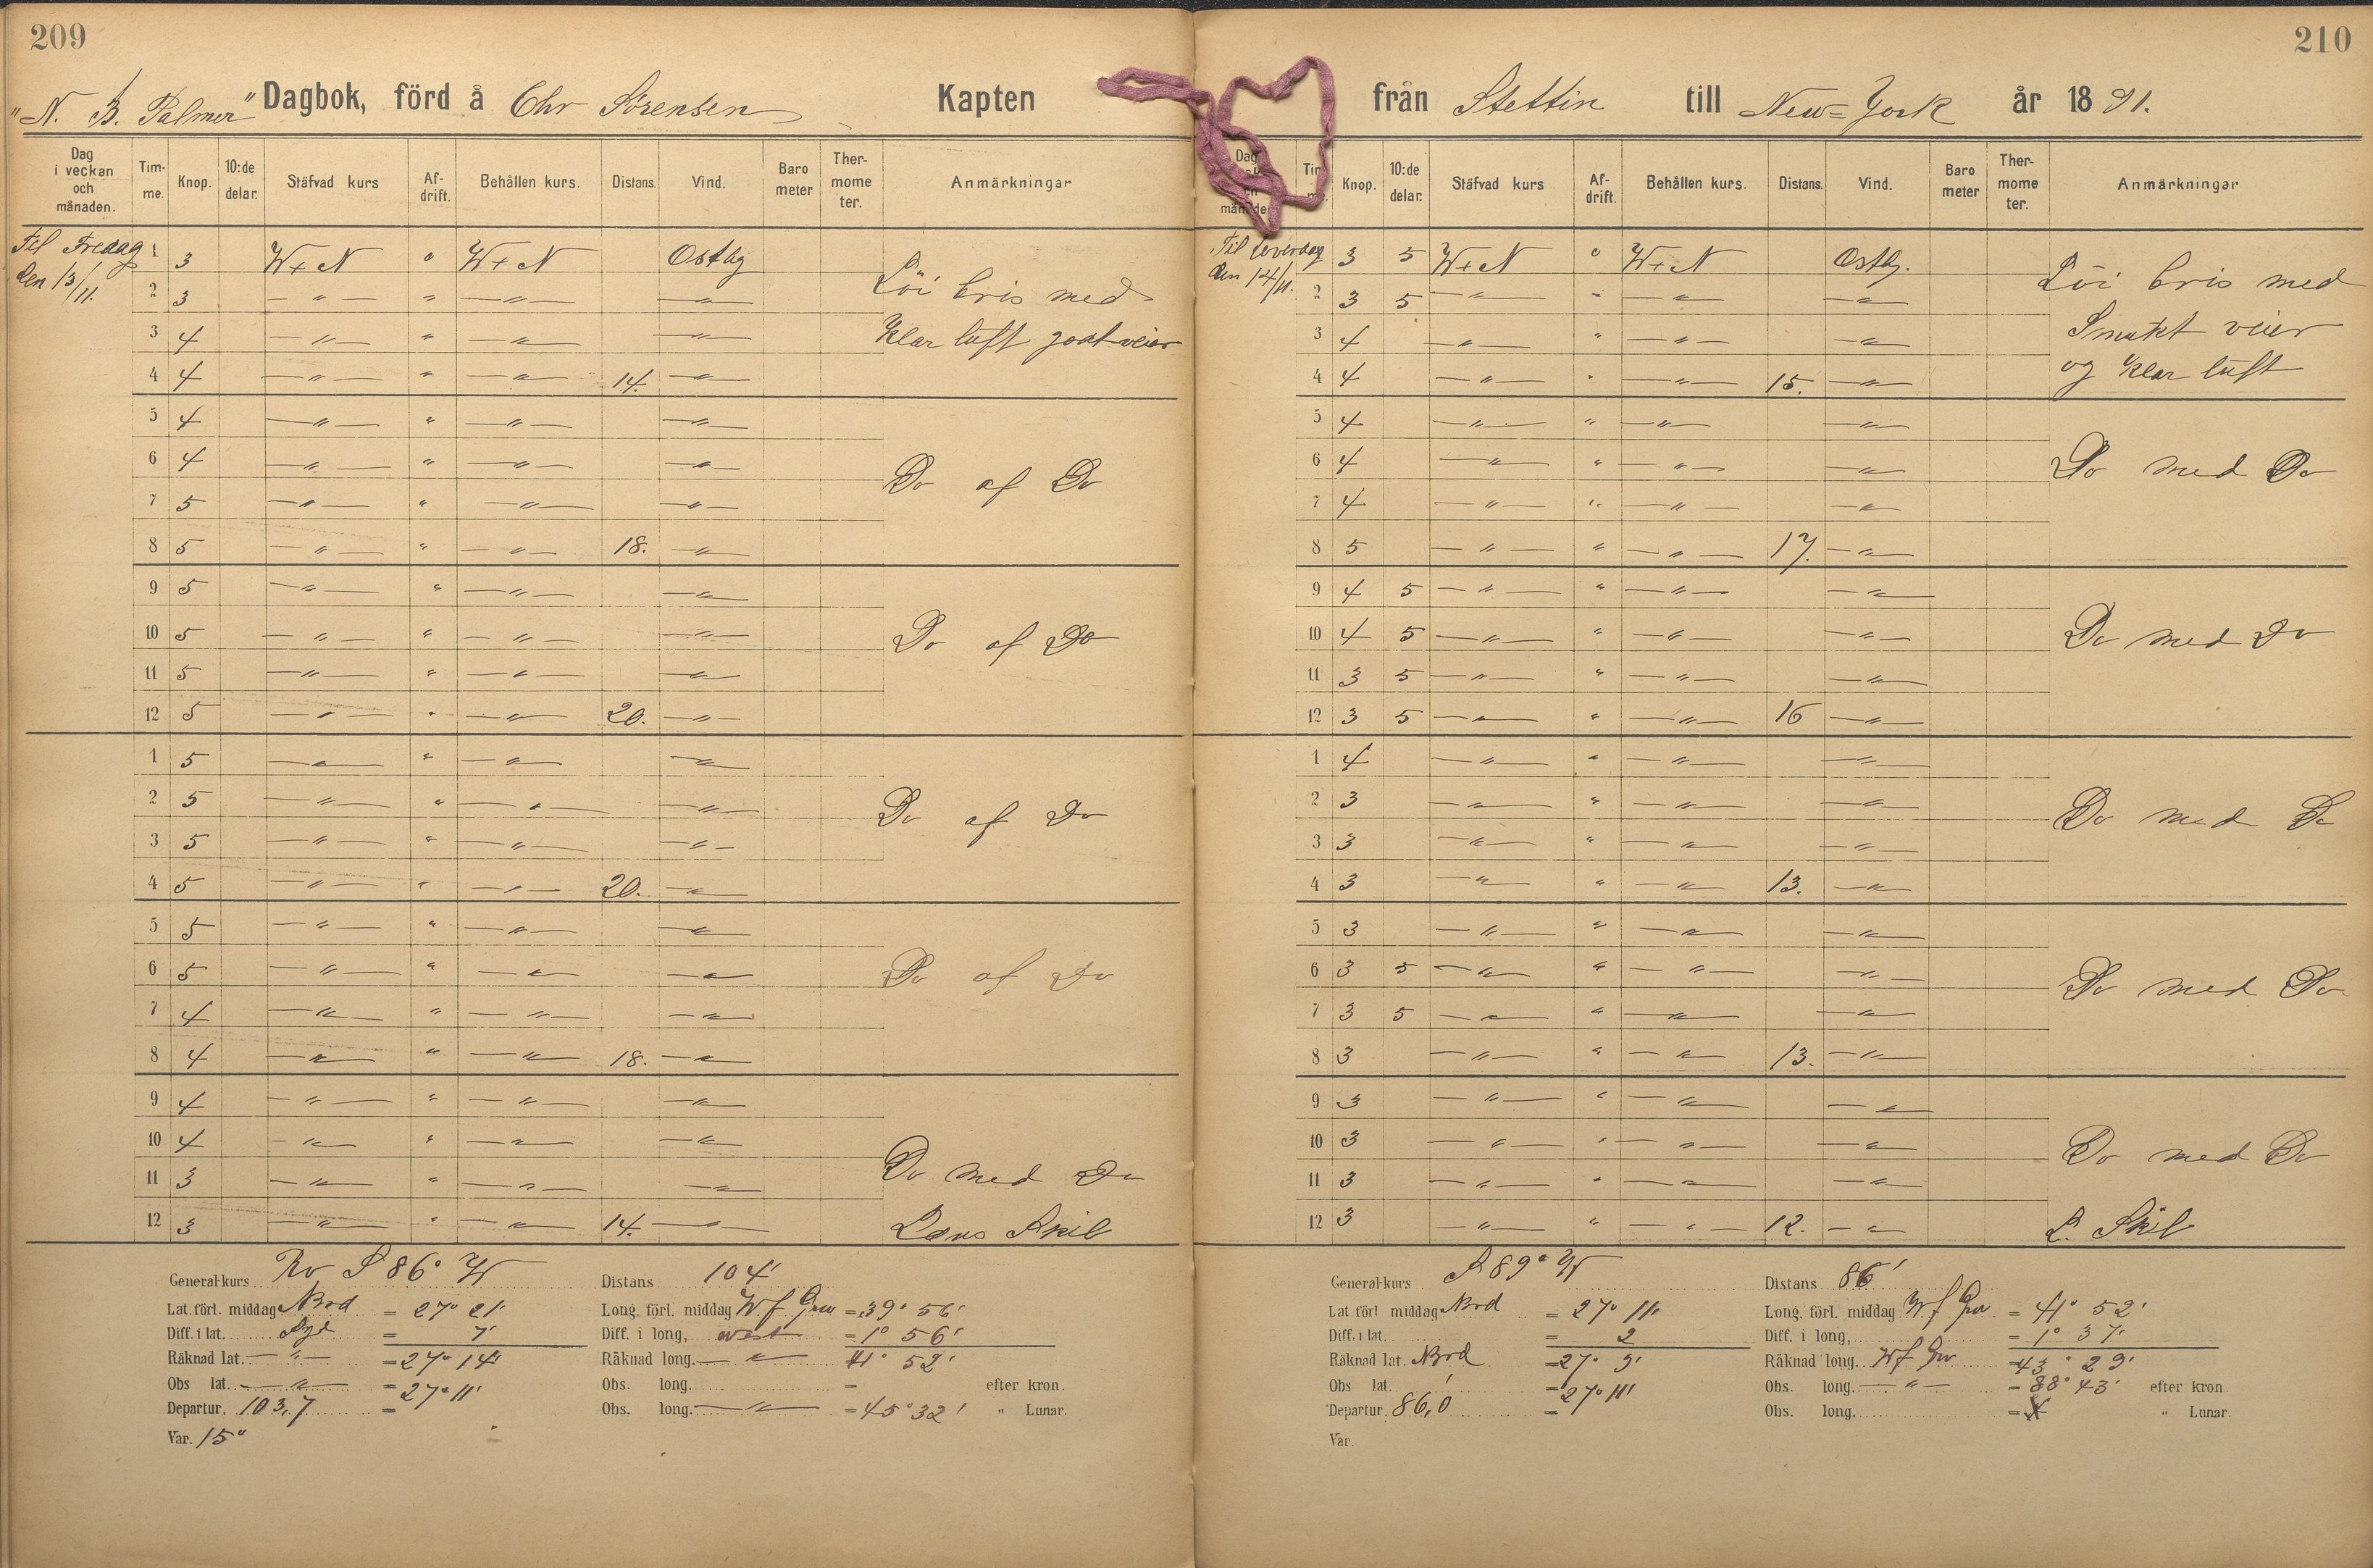 209
"N. B. Palmer" Dagbok, förd å Chr Sörensen Kapten
Dag i veckan och månaden. Tim-me. Knop. 10:de delar. Stäfvad kurs Af-drift. Behållen kurs. Distans. Vind. Baro meter Ther-mome ter. Anmärkningar
Til Fredag den 13/11. 1 3 W+N " W+N Ostlig Löi bris med
2 3 — " — " — " — — " —
3 4 — " — " — " — — " — Klar luft godt veier
4 4 — " — " — " — 14. — " —
5 4 — " — " — " — — " —
6 4 — " — " — " — — " — Do af Do
7 5 — " — " — " — — " —
8 5 — " — " — " — 18. — " —
9 5 — " — " — " — — " —
10 5 — " — " — " — — " — Do af Do
11 5 — " — " — " — — " —
12 5 — " — " — " — 20. — " —
1 5 — " — " — " — — " —
2 5 — " — " — " — — " — Do af Do
3 5 — " — " — " — — " —
4 5 — " — " — " — 20. — " —
5 5 — " — " — " — — " —
6 5 — " — " — " — — " — Do af Do
7 4 — " — " — " — — " —
8 4 — " — " — " — 18. — " —
9 4 — " — " — " — — " —
10 4 — " — " — " — — " —
11 3 — " — " — " — — " — Do med Do
12 3 — " — " — " — 14. — " — Læns Skib
General-kurs Rv S 86° W Distans 104'
Lat. förl. middag Nord = 27° 21' Long. förl. middag W f Grw = 39° 56'
Diff. i lat. Syd = 7' Diff. i long, west = 1° 56'
Räknad lat. — " — = 27° 14' Räknad long. — " — 41° 52'
Obs lat. — " — = 27° 11' Obs. long. = efter kron.
Departur. 103,7 = Obs. long. — " — = 45° 32' " Lunar.
Var. 15°
210
från Stettin till New=York år 18 91.
Dag månaden Tim Knop. 10:de delar. Stäfvad kurs Af-drift. Behållen kurs. Distans. Vind. Baro meter Ther-mome ter. Anmärkningar
Til Löverdag den 14/11. 1 3 5 W+N " W+N Ostlig. Löi bris med
2 3 5 — " — " — " — — " —
3 4 — " — " — " — — " — Smukt veier
4 4 — " — " — " — 15. — " — og klar luft
5 4 — " — " — " — — " —
6 4 — " — " — " — — " — Do med Do
7 4 — " — " — " — — " —
8 5 — " — " — " — 17. — " —
9 4 5 — " — " — " — — " —
10 4 5 — " — " — " — — " — Do med Do
11 3 5 — " — " — " — — " —
12 3 5 — " — " — " — 16 — " —
1 4 — " — " — " — — " —
2 3 — " — " — " — — " — Do med Do
3 3 — " — " — " — — " —
4 3 — " — " — " — 13. — " —
5 3 — " — " — " — — " —
6 3 5 — " — " — " — — " — Do med Do
7 3 5 — " — " — " — — " —
8 3 — " — " — " — 13. — " —
9 3 — " — " — " — — " —
10 3 — " — " — " — — " — Do med Do
11 3 — " — " — " — — " —
12 3 — " — " — " — 12. — " — L. Skib
General-kurs S 89° W Distans 86'
Lat förl middag Nord = 27° 11' Long. förl. middag W f Grw = 41° 52'
Diff. i lat. = 2 Diff. i long, = 1° 37'
Räknad lat. Nord = 27° 9' Räknad long. W f Grw = 43° 29'
Obs lat. = 27° 11' Obs. long. — " — = 88° 43' efter kron.
Departur. 86,0 = Obs. long. = " Lunar.
Var.